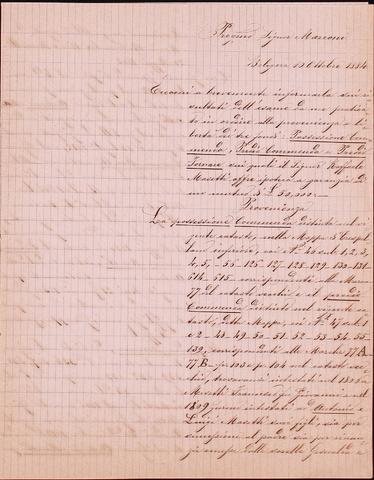 Pregmo Signor Marconi
Bologna 19 Ottobre 1884
Eccomi a brevemente informarla sui ri-
sultati dell'esame da me pratica-
to in ordine alla provenienza e li-
bertà dei tre fondi: Possessione Com-
menda, Predio Commenda e Predio
Fornace sui quali il Signor Raffaele
Masetti offre ipoteca a garanzia di
un mutuo di L. 50,000.—
Provenienza
La possessione Commenda distinta nel vi-
gente catasto, nella Mappa di Crespel-
lano inferiore, coi N. 44 sub 1, 2, 3,
4, 5, - 55 - 125 - 127 - 128 - 129 - 130 - 131
614 - 615 - corrispondenti alla Marca
77 del catasto vecchio e il predio
Commenda distinto nel vigente ca-
tasto, detta Mappa, coi N. 47 sub 1
e 2 - 48 - 49 - 50 - 51 - 52 - 53 - 54 - 55 -
139, corrispondenti alle Marche 77 A
77 B p. 103 e p. 104 nel catasto vec-
chio, trovavansi intestati nel
Masetti Francesco fu Giovanni e nel
1809 furono intestati ad Antonio e
Luigi Masetti suoi figli, sia per
successione al padre sia per rinun-
zia emessa dalle sorelle